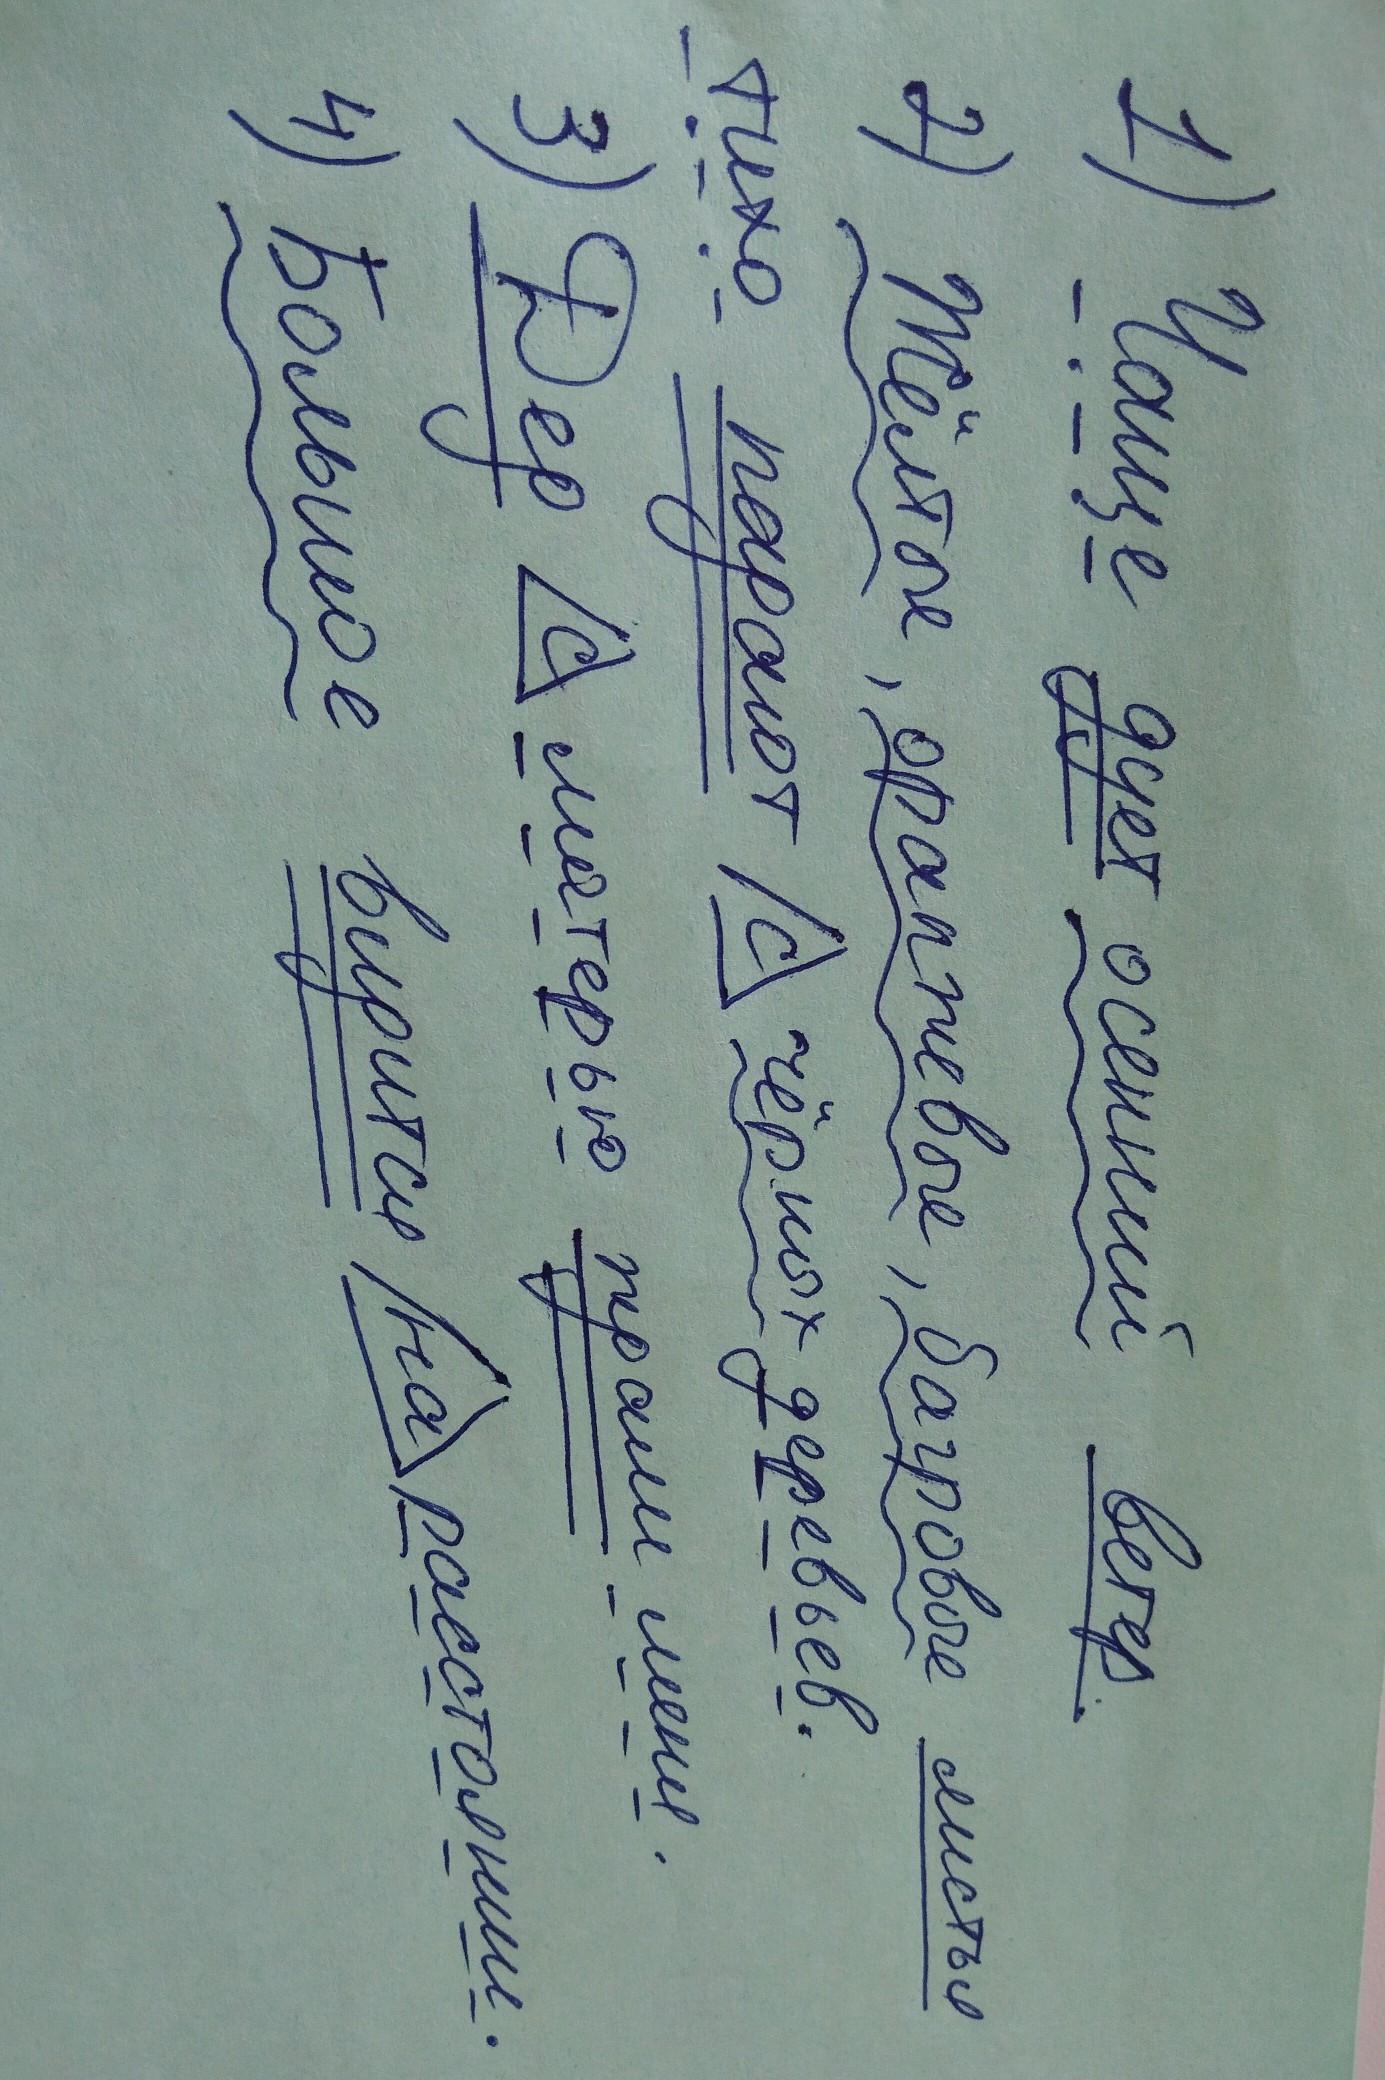 1) Чаще дует осенний ветер.
2) Жёлтые, оранжевые, багровые листья
тихо падают с чёрных деревьев.
3) Дед с матерью прали меня.
4) Большое видится на расстоянии.